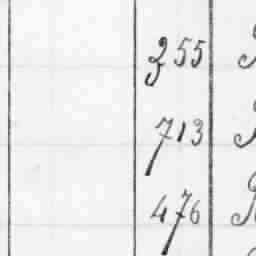 355
713
476